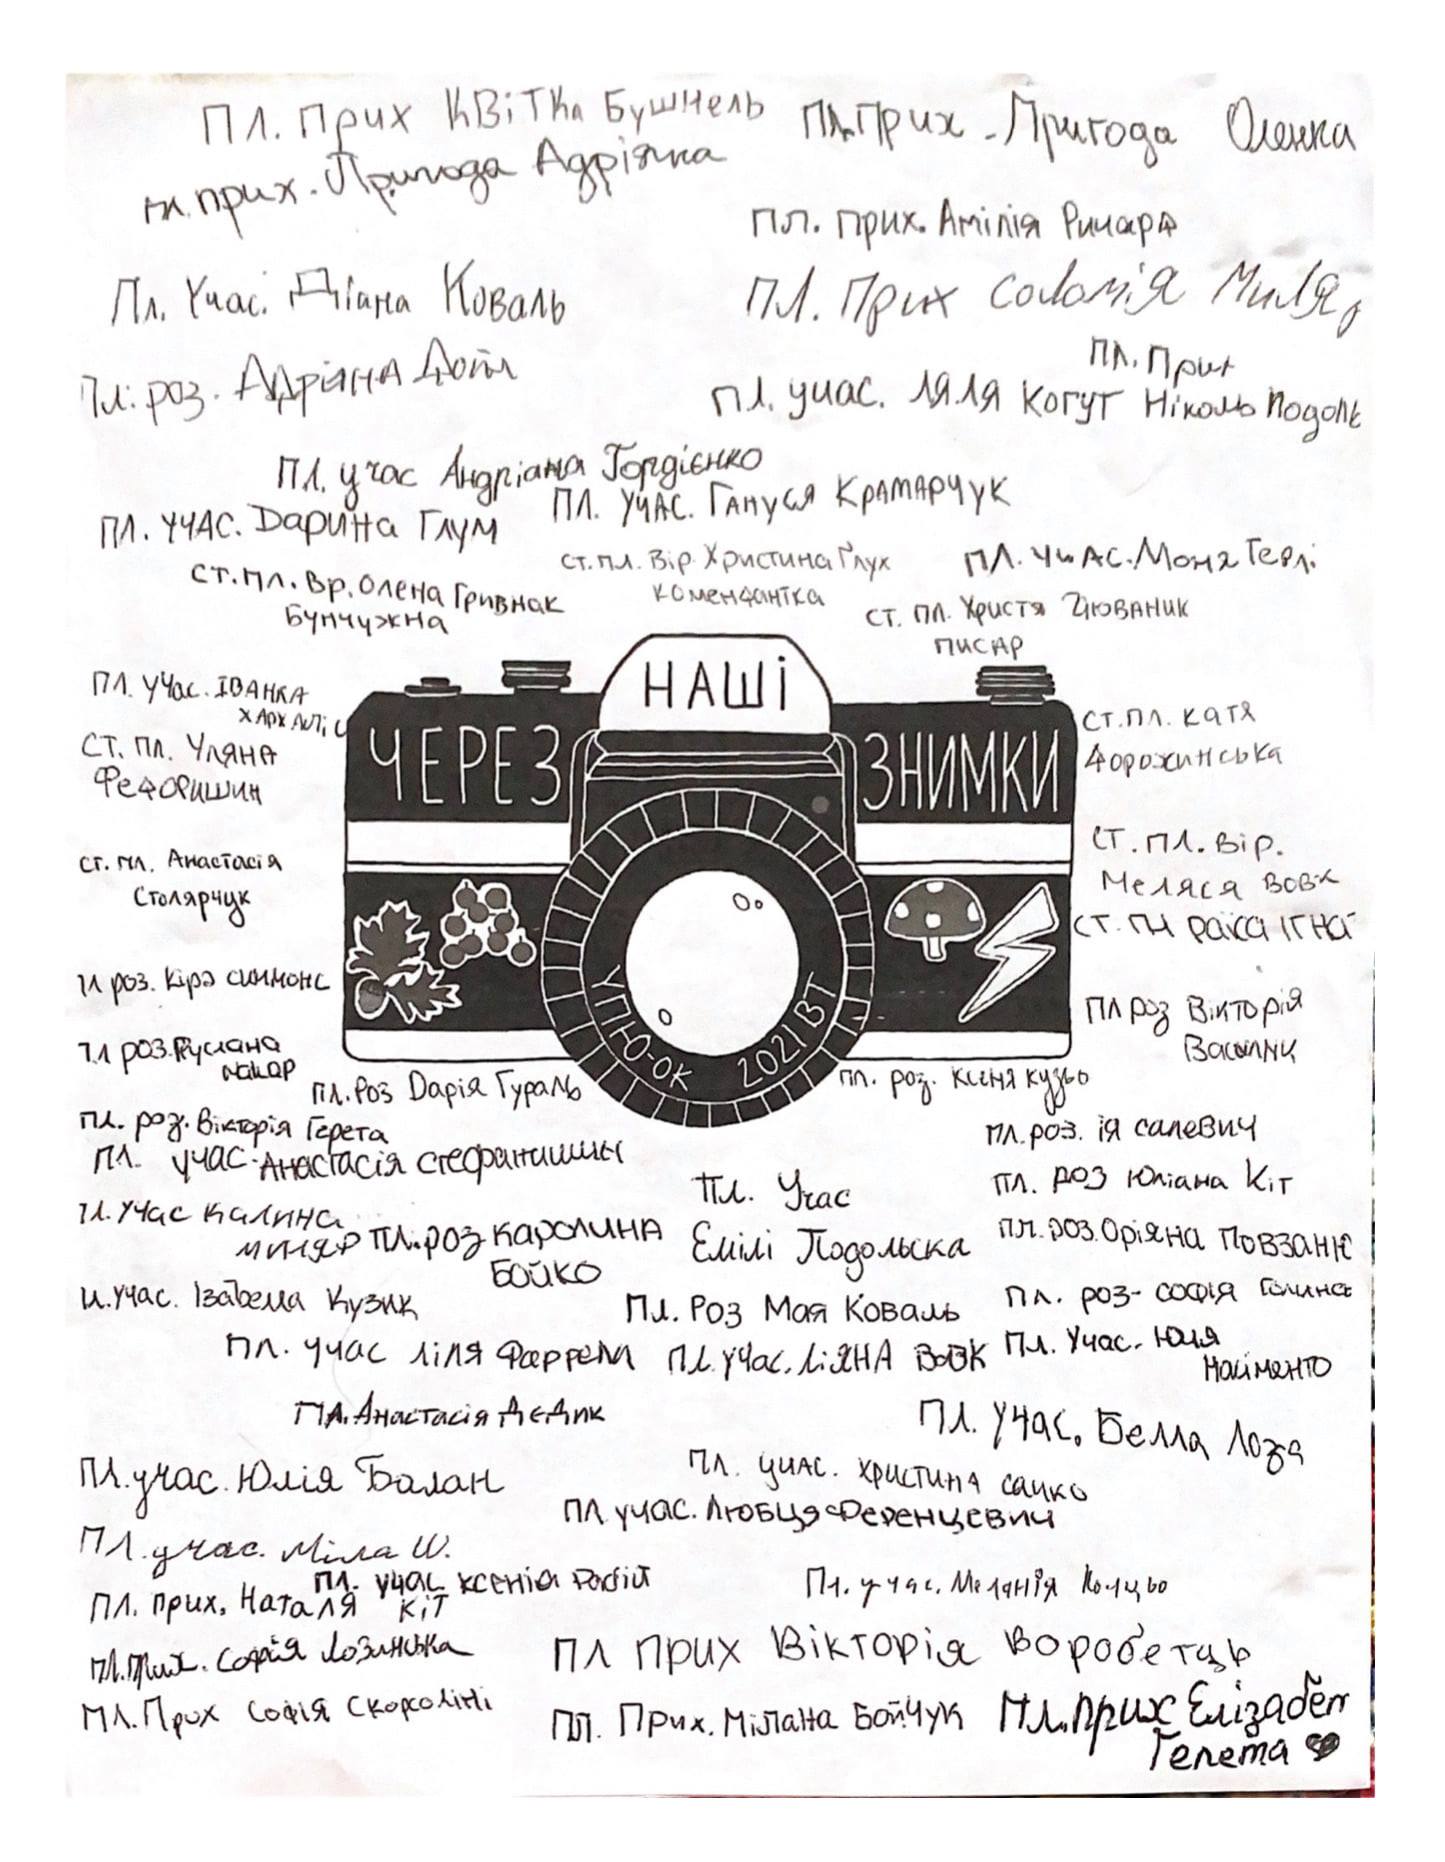 Пл. Прих Квітка Бушнель
Пл. Прих - Пригода Оленка
пл. прих. - Пригода Адріяна
Пл. Прих. Амілія Ричард
Пл. Учас. Діана Коваль
Пл. Прих Соломія Миляр
Пл. роз. Адріяна Дойл
Пл. Прих
Пл. учас. Ляля Когут Ніколь Подоль
Пл. учас Андріана Гордієнко
Пл. Учас. Гануся Крамарчук
Пл. Учас. Дарина Глум
ст. пл. вір. Христина Глух
комендантка
Пл. учас. Моня Герлі
ст. пл. вр. Олена Гривнак
Бунчужна
ст. пл. Христя
писар
НАШІ
ЧЕРЕЗ
ЗНИМКИ
УПЮ-ОК 2021 ВТ
Пл. Учас. Іванка
ст. пл. Уляна
Федоришин
ст. пл. Катя
Дорожинська
ст. пл. Анастасія
Столярчук
ст. пл. вір.
Меляся Вовк
ст. пл Раїса Ігна
пл роз. Кіра Симмонс
пл роз Вікторія
пл роз. Руслана
Макар
пл. Роз Дарія Гураль
пл. роз. Ксеня Кузьо
пл. роз. Вікторія Герета
пл. роз. Ія Салевич
Пл. учас. Анастасія Стефанишин
Пл. Учас
Емілі Подольска
пл. роз Юліана Кіт
пл. учас Калина
Миляр
пл. роз Каролина
Бойко
пл. роз. Оріяна Повзанюк
пл. учас. Ізабелла Кузик
Пл. Роз Мая Коваль
пл. роз- Софія
Пл. учас Ліля Фаррелл
Пл. Учас. Ліяна Вовк
Пл. Учас. Юлія
Насіменто
Пл. Анастасія Дєдик
Пл. Учас. Белла Лоза
Пл. учас. Юлія Балан
Пл. учас. Христина Сайко
Пл. учас. Любця Ференцевич
Пл. учас. Міла Ш.
Пл. учас Ксенія
Пл. учас. Меланія
Пл. прих. Наталя Кіт
Пл. прих. Софія Лозинська
Пл прих Вікторія Воробетць
Пл. Прих Софія Скорсоліні
Пл. Прих. Мілана Бойчук
Пл. прих Елізабет
Гелета